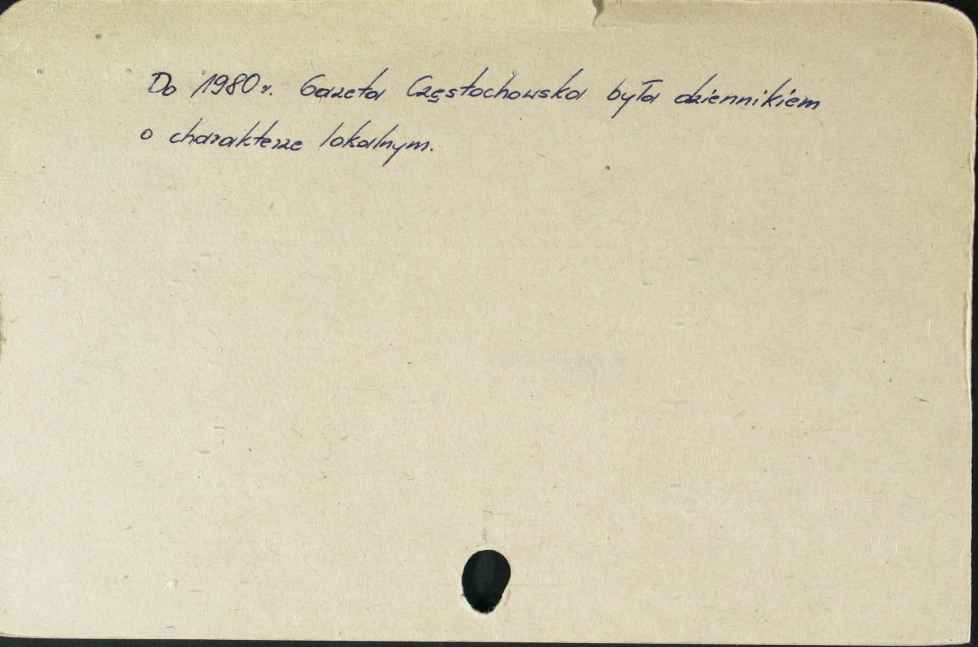 Do 1980 r. Gazeta Częstochowska była dziennikiem
o charakterze lokalnym.